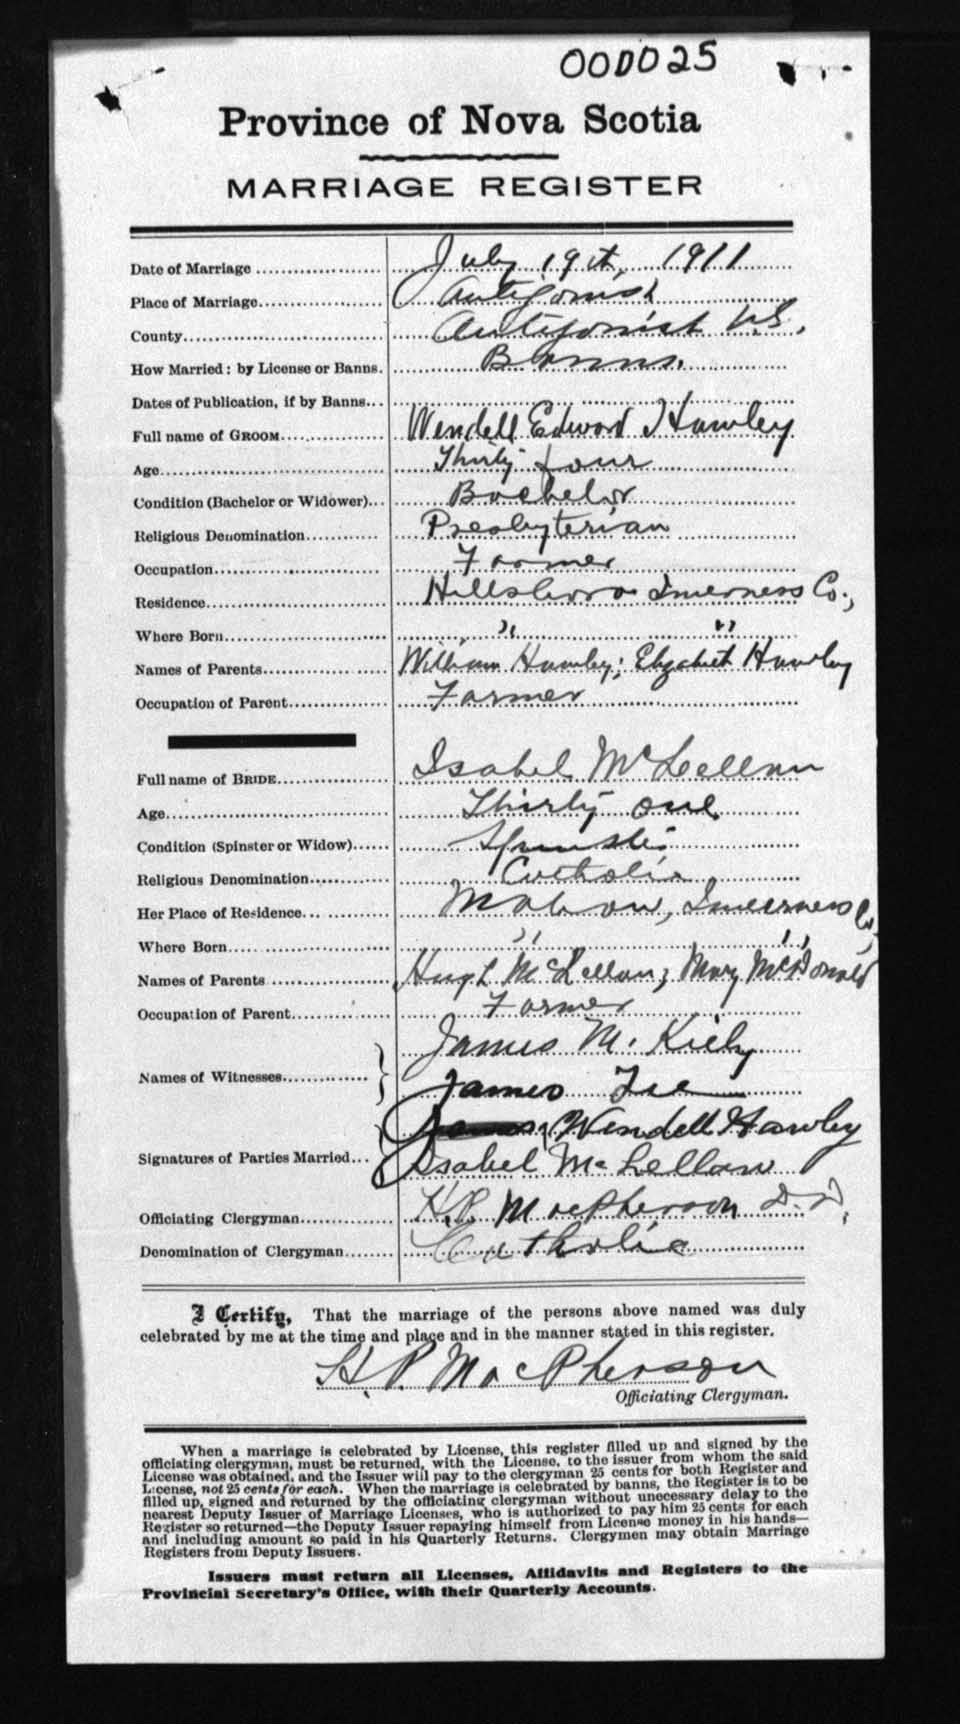 000025
Province of Nova Scotia
MARRIAGE REGISTER
Date of Marriage July 19th, 1911
Place of Marriage Antigonish
County Antigonish N.S.
How Married: by License or Banns. Banns.
Dates of Publication, if by Banns
Full name of GROOM Wendell Edward Hawley
Age Thirty four
Condition (Bachelor or Widower) Bachelor
Religious Denomination Presbyterian
Occupation Farmer
Residence Hillsboro Inverness Co.,
Where Born " "
Names of Parents William Hawley; Elizabeth Hawley
Occupation of Parent Farmer
Full name of BRIDE Isabel McLellan
Age Thirty one
Condition (Spinster or Widow) Spinster
Religious Denomination Catholic
Her Place of Residence Mabou, Inverness Co.,
Where Born " "
Names of Parents Hugh McLellan; Mary McDonald
Occupation of Parent Farmer
James M. Kiely
Names of Witnesses
James
Wendell Hawley
Signatures of Parties Married Isabel McLellan
Officiating Clergyman H.P. MacPherson D.D.
Denomination of Clergyman Catholic
I Certify, That the marriage of the persons above named was duly
celebrated by me at the time and place and in the manner stated in this register.
H.P. MacPherson
Officiating Clergyman.
When a marriage is celebrated by License, this register filled up and signed by the
officiating clergyman, must be returned, with the License, to the issuer from whom the said
License was obtained, and the Issuer will pay to the clergyman 25 cents for both Register and
License, not 25 cents for each. When the marriage is celebrated by banns, the Register is to be
filled up, signed and returned by the officiating clergyman without unecessary delay to the
nearest Deputy Issuer of Marriage Licenses, who is authorized to pay him 25 cents for each
Register so returned—the Deputy Issuer repaying himself from License money in his hands—
and including amount so paid in his Quarterly Returns. Clergymen may obtain Marriage
Registers from Deputy Issuers.
Issuers must return all Licenses, Affidavits and Registers to the
Provincial Secretary's Office, with their Quarterly Accounts.